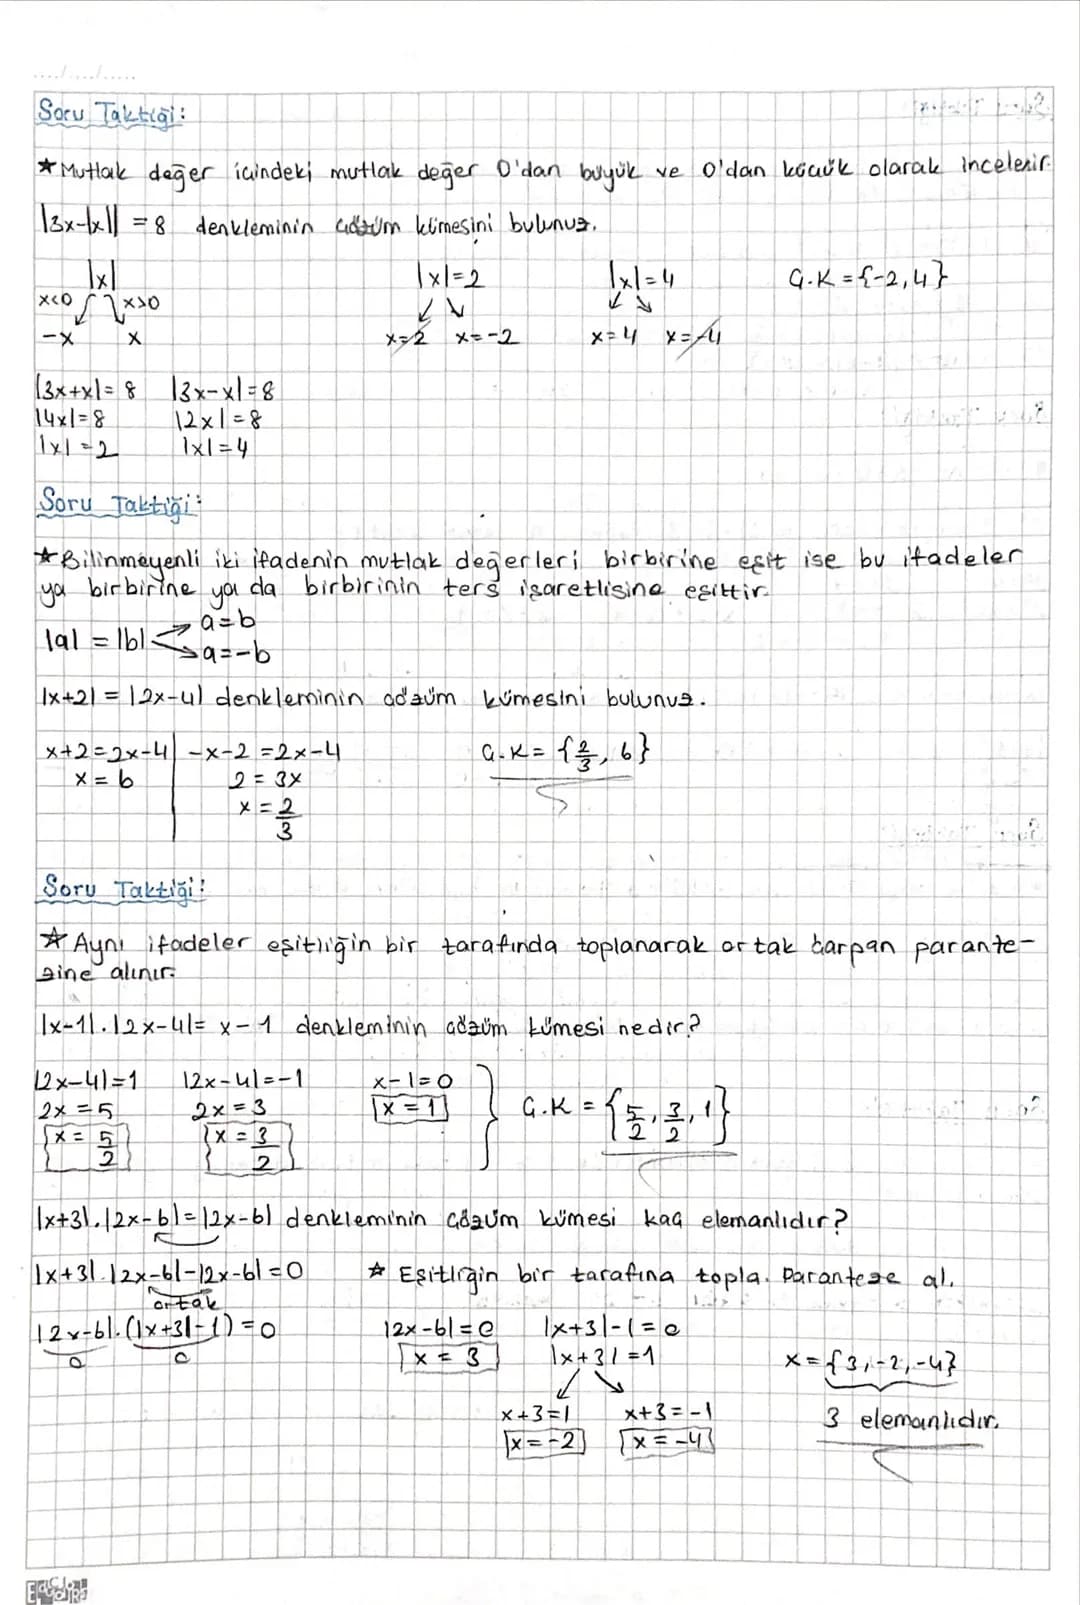 Soru Taktiği:
★ Mutlak değer içindeki mutlak değer 0'dan büyük ve 0'dan küçük olarak incelenir.
|3x-|x|| = 8 denkleminin çözüm kümesini bulunuz.
|x| |x|=2 |x|=4 Ç.K = {-2,4}
x<0 x>0
-x x x=2 x=-2 x=4 x=-4
|3x+x|=8 |3x-x|=8
|4x|=8 |2x|=8
|x|=2 |x|=4
Soru Taktiği:
★ Bilinmeyenli iki ifadenin mutlak değerleri birbirine eşit ise bu ifadeler
ya birbirine ya da birbirinin ters işaretlisine eşittir.
a=b
|a| = |b|
a=-b
|x+2| = |2x-4| denkleminin çözüm kümesini bulunuz.
x+2=2x-4 | -x-2=2x-4 Ç.K = {2/3, 6}
x=6 2=3x
x=2/3
Soru Taktiği:
★ Aynı ifadeler eşitliğin bir tarafında toplanarak ortak çarpan parante-
zine alınır.
|x-1|.|2x-4|= x-1 denkleminin çözüm kümesi nedir?
|2x-4|=1 |2x-4|=-1 x-1=0
2x=5 2x=3 x=1 Ç.K = {5/2, 3/2, 1}
x=5/2 x=3/2
|x+3|.|2x-6|=|2x-6| denkleminin çözüm kümesi kaç elemanlıdır?
|x+3|.|2x-6|-|2x-6|=0 ★ Eşitliğin bir tarafına topla. Paranteze al.
ortak
|2x-6|.(|x+3|-1)=0 |2x-6|=0 |x+3|-1=0
0 0 x=3 |x+3|=1 x={3,-2,-4}
x+3=1 x+3=-1 3 elemanlıdır.
x=-2 x=-4